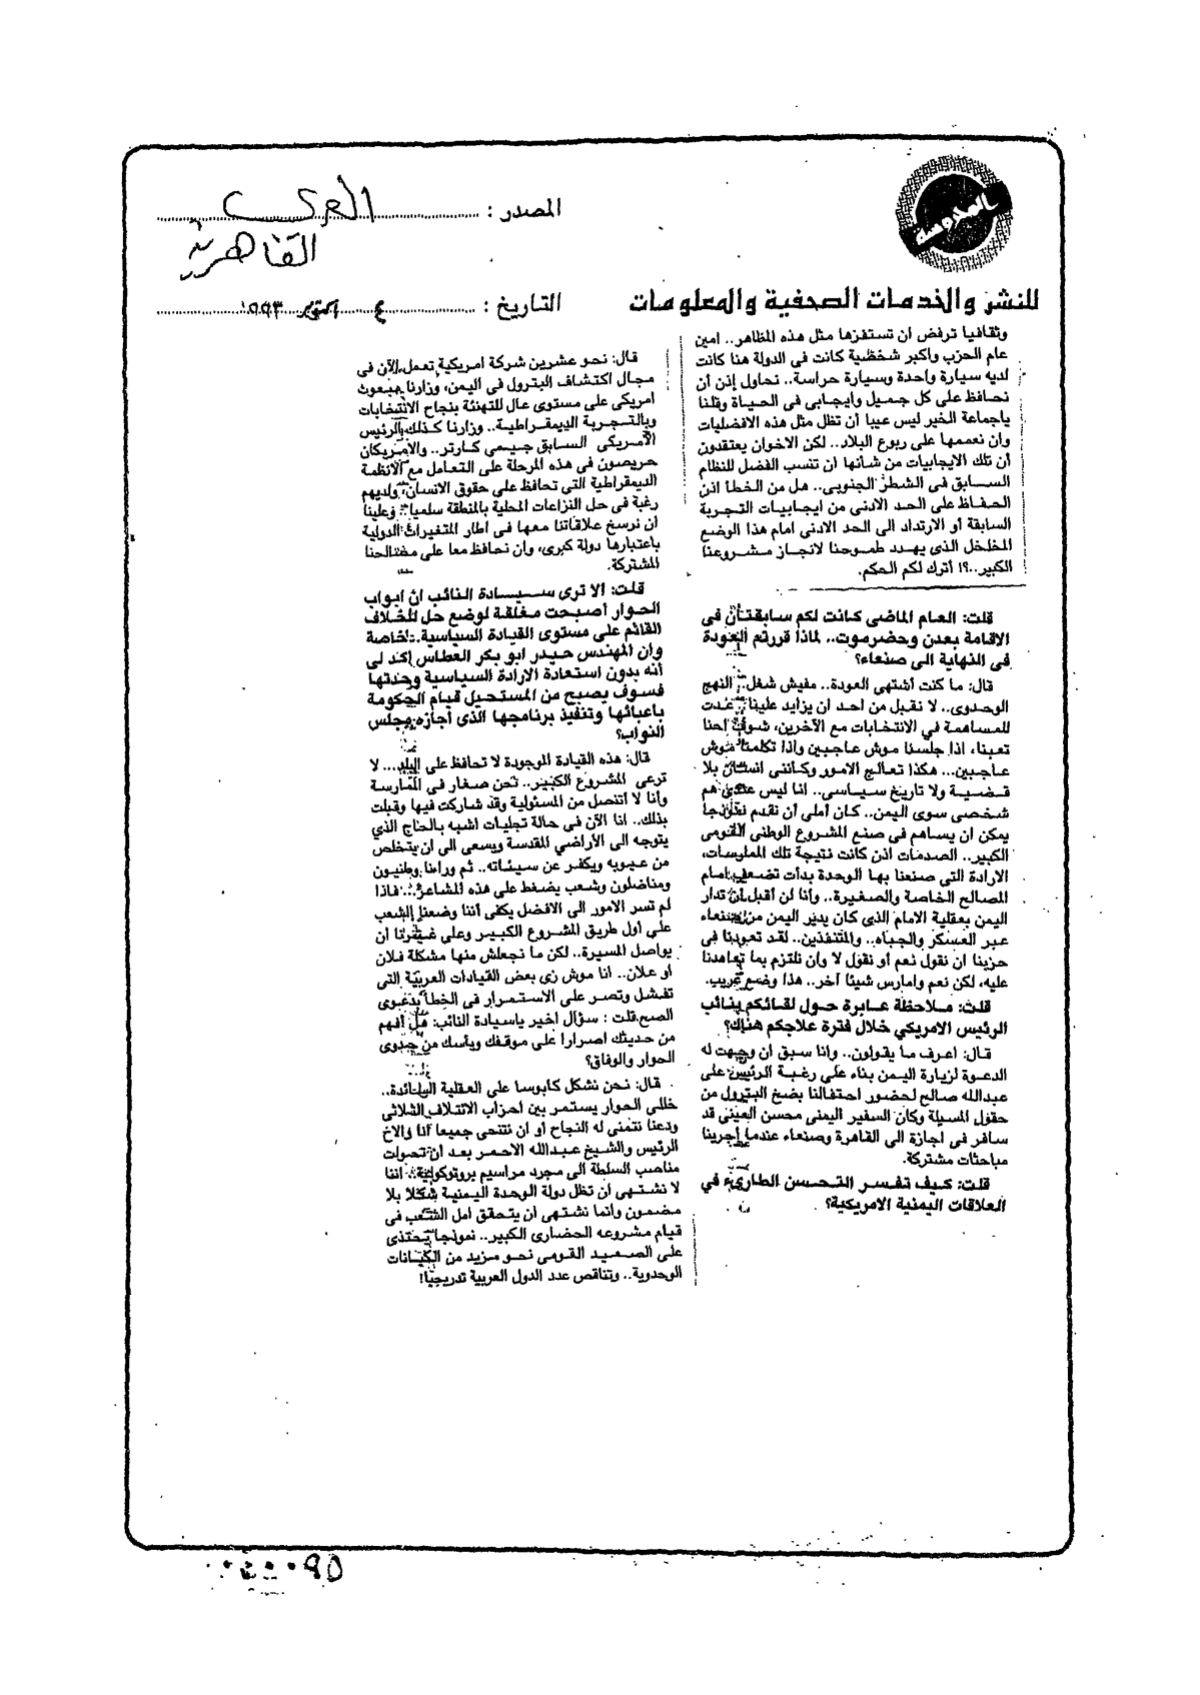 المعلومات
للنشر والخدمات الصحفية والمعلومات
المصدر : العربى
القاهرية
التاريخ : ٤ اكتوبر ١٩٩٣
وثقافيا ترفض ان تستفزها مثل هذه المظاهر.. امين
عام الحزب واكبر شخصية كانت فى الدولة هنا كانت
لديه سيارة واحدة وسيارة حراسة.. نحاول إذن أن
نحافظ على كل جميل وايجابى فى الحياة وقلنا
ياجماعة الخير ليس عيبا أن تظل مثل هذه الافضليات
وان نعممها على ربوع البلاد.. لكن الاخوان يعتقدون
أن تلك الايجابيات من شأنها ان تنسب الفضل للنظام
السابق فى الشطر الجنوبى.. هل من الخطأ اذن
الحفاظ على الحد الادنى من ايجابيات التجربة
السابقة أو الارتداد الى الحد الادنى امام هذا الوضع
المخلخل الذى يهدد طموحنا لانجاز مشروعنا
الكبير..؟! أترك لكم الحكم.
قلت: العام الماضى كانت لكم سابقتان فى
الاقامة بعدن وحضرموت.. لماذا قررتم العودة
فى النهاية الى صنعاء؟
قال: ما كنت أشتهى العودة.. مفيش شغل.. النهج
الوحدوى.. لا نقبل من احد ان يزايد علينا.. عدت
للمساهمة في الانتخابات مع الآخرين، شوف احنا
تعبنا، اذا جلسنا موش عاجبين واذا تكلمنا موش
عاجبين... هكذا تعالج الامور وكأننى انسان بلا
قضية ولا تاريخ سياسى.. انا ليس عندى هم
شخصى سوى اليمن.. كان أملى أن نقدم نموذجا
يمكن ان يساهم فى صنع المشروع الوطنى القومى
الكبير.. الصدمات اذن كانت نتيجة تلك الملموسات،
الارادة التى صنعنا بها الوحدة بدأت تضعف امام
المصالح الخاصة والصغيرة.. وأنا لن أقبل أن تدار
اليمن بعقلية الامام الذى كان يدير اليمن من صنعاء
عبر العسكر والجباه.. والمتنفذين.. لقد تعودنا فى
حزبنا ان نقول نعم أو نقول لا وان نلتزم بما تعاهدنا
عليه، لكن نعم وامارس شيئا آخر.. هذا وضع غريب.
قلت: ملاحظة عابرة حول لقائكم بنائب
الرئيس الامريكي خلال فترة علاجكم هناك؟
قال: اعرف ما يقولون.. وانا سبق ان وجهت له
الدعوة لزيارة اليمن بناء على رغبة الرئيس على
عبدالله صالح لحضور احتفالنا بضخ البترول من
حقول المسيلة وكان السفير اليمنى محسن العينى قد
سافر فى اجازة الى القاهرة وصنعاء عندما أجرينا
مباحثات مشتركة.
قلت: كيف تفسر التحسن الطارىء في
العلاقات اليمنية الامريكية؟
قال: نحو عشرين شركة امريكية تعمل الآن فى
مجال اكتشاف البترول فى اليمن، وزارنا مبعوث
امريكى على مستوى عال للتهنئة بنجاح الانتخابات
وبالتجربة الديمقراطية.. وزارنا كذلك الرئيس
الأمريكى السابق جيمى كارتر.. والامريكان
حريصون فى هذه المرحلة على التعامل مع الانظمة
الديمقراطية التى تحافظ على حقوق الانسان، ولديهم
رغبة فى حل النزاعات المحلية بالمنطقة سلميا، وعلينا
أن نرسخ علاقاتنا معها فى اطار المتغيرات الدولية
باعتبارها دولة كبرى، وأن نحافظ معا على مصالحنا
المشتركة.
قلت: الا ترى سيادة النائب ان ابواب
الحوار أصبحت مغلقة لوضع حل للخلاف
القائم على مستوى القيادة السياسية.. خاصة
وان المهندس حيدر ابو بكر العطاس اكد لى
أنه بدون استعادة الارادة السياسية وحدتها
فسوف يصبح من المستحيل قيام الحكومة
باعبائها وتنفيذ برنامجها الذى أجازه مجلس
النواب؟
قال: هذه القيادة الموجودة لا تحافظ على البلد... لا
ترعى المشروع الكبير.. نحن صغار فى الممارسة
وأنا لا أتنصل من المسئولية وقد شاركت فيها وقبلت
بذلك.. انا الآن فى حالة تجليات اشبه بالحاج الذي
يتوجه الى الأراضي المقدسة ويسعى الى ان يتخلص
من عيوبه ويكفر عن سيئاته.. ثم وراءنا وطنيون
ومناضلون وشعب يضغط على هذه المشاعر.. فاذا
لم تسر الامور الى الافضل يكفى أننا وضعنا الشعب
على أول طريق المشروع الكبير وعلى غيرنا ان
يواصل المسيرة.. لكن ما نجعلش منها مشكلة فلان
أو علان.. انا موش زى بعض القيادات العربية التى
تفشل وتصر على الاستمرار فى الخطأ بدعوى
الصح. قلت : سؤال اخير ياسيادة النائب: هل أفهم
من حديثك اصرارا على موقفك ويأسك من جدوى
الحوار والوفاق؟
قال: نحن نشكل كابوسا على العقلية السائدة..
خللى الحوار يستمر بين احزاب الائتلاف الثلاثى
ودعنا نتمنى له النجاح او ان نتنحى جميعا أنا والاخ
الرئيس والشيخ عبدالله الاحمر بعد ان تحولت
مناصب السلطة الى مجرد مراسيم بروتوكولية.. اننا
لا نشتهى ان تظل دولة الوحدة اليمنية شكلا بلا
مضمون وانما نشتهى ان يتحقق امل الشعب فى
قيام مشروعه الحضارى الكبير.. نموذجا يحتذى
على الصعيد القومى نحو مزيد من الكيانات
الوحدوية.. وتناقص عدد الدول العربية تدريجيا!